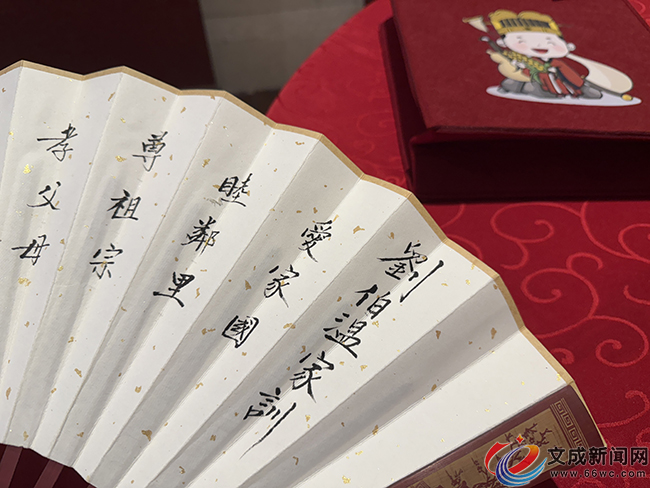 劉伯温家訓
愛家國
睦鄰里
尊祖宗
孝父母
文成新闻网
www.66wc.com